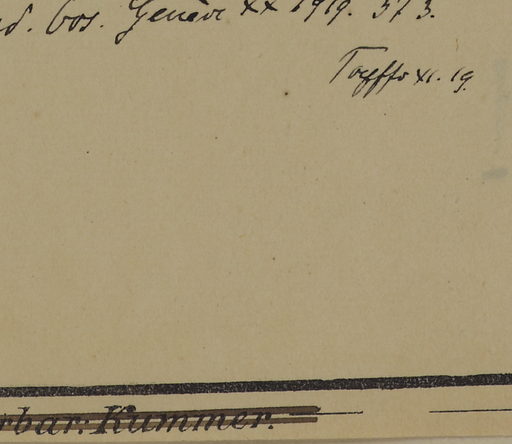 d. bos. Genève XX 1919. 373.
XI. 19.
rbar: Kummer.